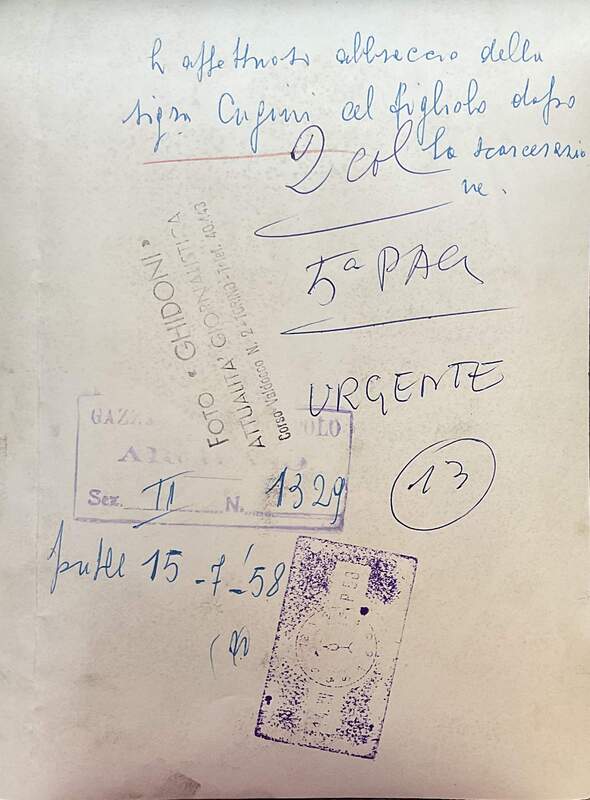 L'affettuoso abbraccio della
sigra Cugini al figliolo dopo
la scarcerazio
ne.
2 col
5ª PAG
URGENTE
13
FOTO « GHIDONI »
ATTUALITA' GIORNALISTICA
Corso Valdocco N. 2 - TORINO - Telef. 40.143
GAZZ
OLO
Sez. II N. 1329
pubbl 15-7-'58